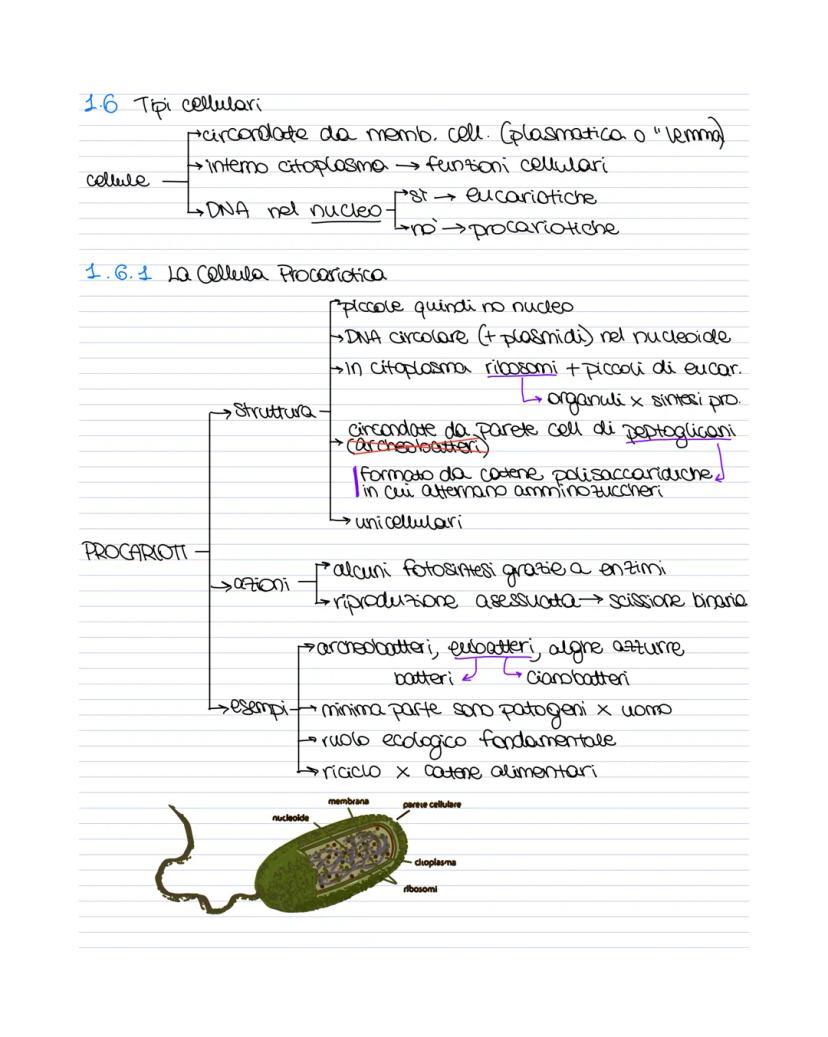 1.6 Tipi cellulari
→circondate da memb. cell. (plasmatica o "lemma)
cellule →interno citoplasma → funzioni cellulari
→DNA nel nucleo →sì → eucariotiche
→no → procariotiche
1.6.1 La Cellula Procariotica
→piccole quindi no nucleo
→DNA circolare (+ plasmidi) nel nucleoide
→in citoplasma ribosomi + piccoli di eucar.
→ organuli x sintesi pro.
→struttura
circondate da parete cell di peptoglicani
→(archeobatteri)
formato da catene polisaccaridiche
in cui alternano amminozuccheri
→ unicellulari
PROCARIOTI
→alcuni fotosintesi grazie a enzimi
→azioni
→riproduzione asessuata→ scissione binaria
→archeobatteri, eubatteri, alghe azzurre
batteri Cianobatteri
→esempi → minima parte sono patogeni x uomo
→ruolo ecologico fondamentale
→riciclo x catene alimentari
membrana
parete cellulare
nucleoide
citoplasma
ribosomi